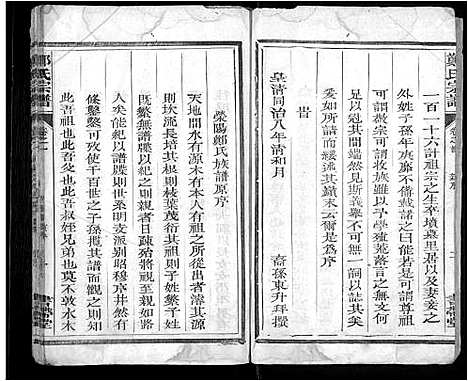 鄭氏宗譜
一百一十六計祖宗之生卒墳塋里居以及妻妾之
外姓子孫年庚爺不備載於譜以是而謂之尊祖
可謂敬宗亦可謂收族雖可也予學殖荒落無文何
足以冠其首問竭然見斯義舉不可無一詞以誌其美
也於是而緩述其顛末云爾是為序
皇清同治八年清和月
裔孫東升拜撰
昔
滎陽鄭氏族譜原序
天地間水有源木有本人有祖之所從出者濬其源
則坎流長培其根則枝葉茂衍其祖則子姓繁子姓
既繁無譜牒以紀之則親者日疎殆將視至親如路
人矣能紀以譜牒則世系明支派別昭穆序井然有
條繫繫可攷使千百世之子孫披其譜而觀之則曰
此吾祖也此吾父也此吾叔姪兄弟也莫不敦水木
鄭氏宗譜
卷之一